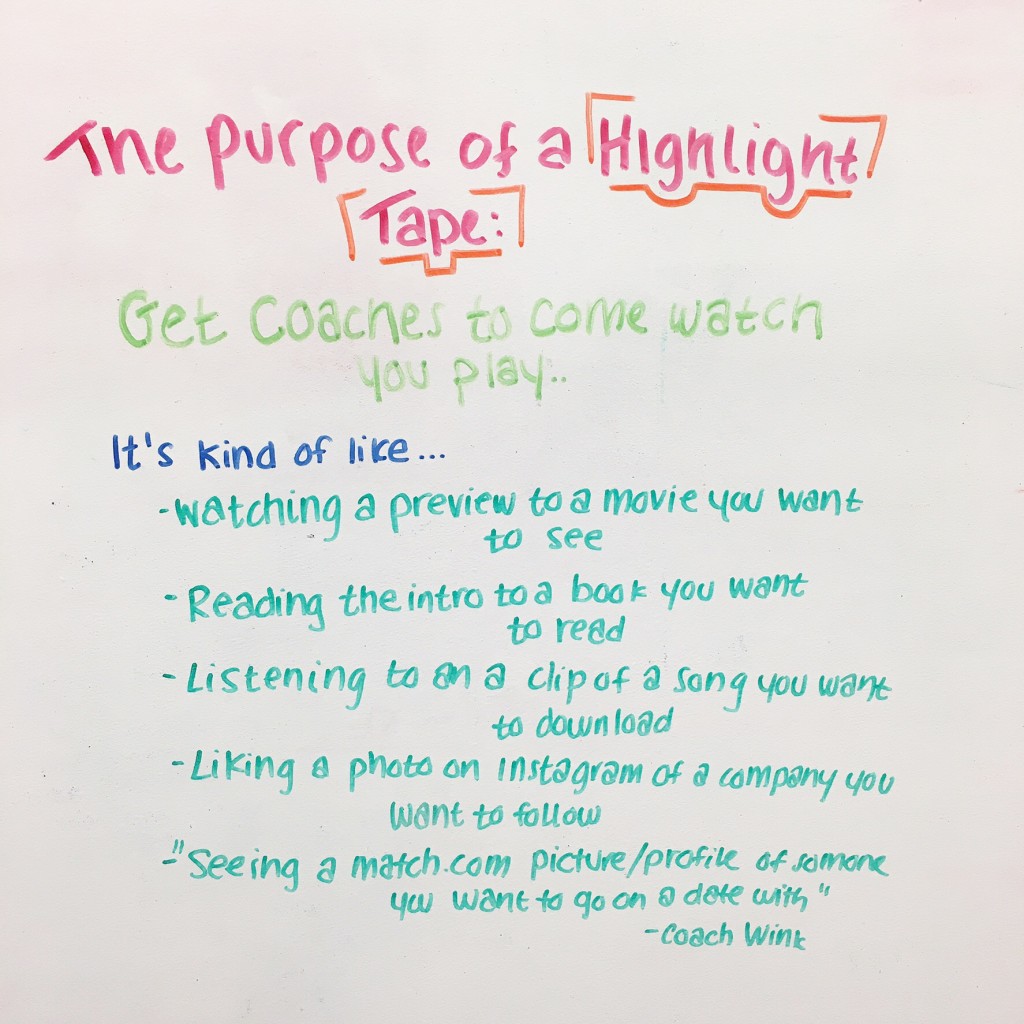 The purpose of a Highlight
Tape:
Get Coaches to come watch
you play..
It's kind of like...
-Watching a preview to a movie you want
to see
- Reading the intro to a book you want
to read
-Listening to an a clip of a song you want
to download
-Liking a photo on instagram of a company you
want to follow
-"Seeing a match.com picture/profile of somone
you want to go on a date with"
-Coach Wink